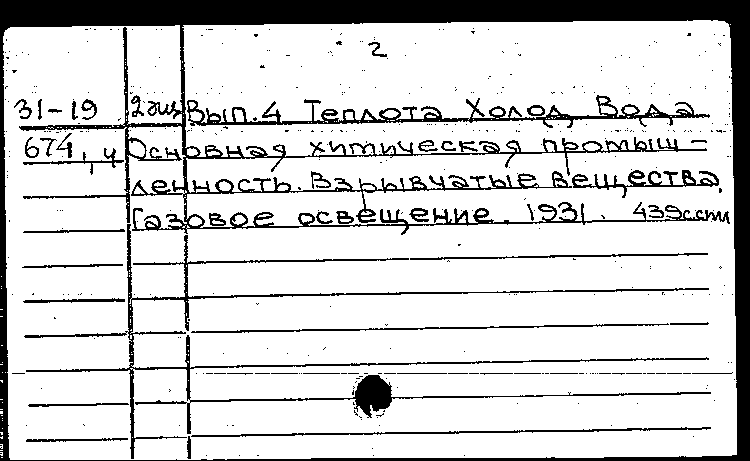 2
31-19 2 экз Вып.4 Теплота Холод, Вода
674, ч Основная химическая промыш-
ленность. Взрывчатые вещества,
Газовое освещение. 1931. 439с.